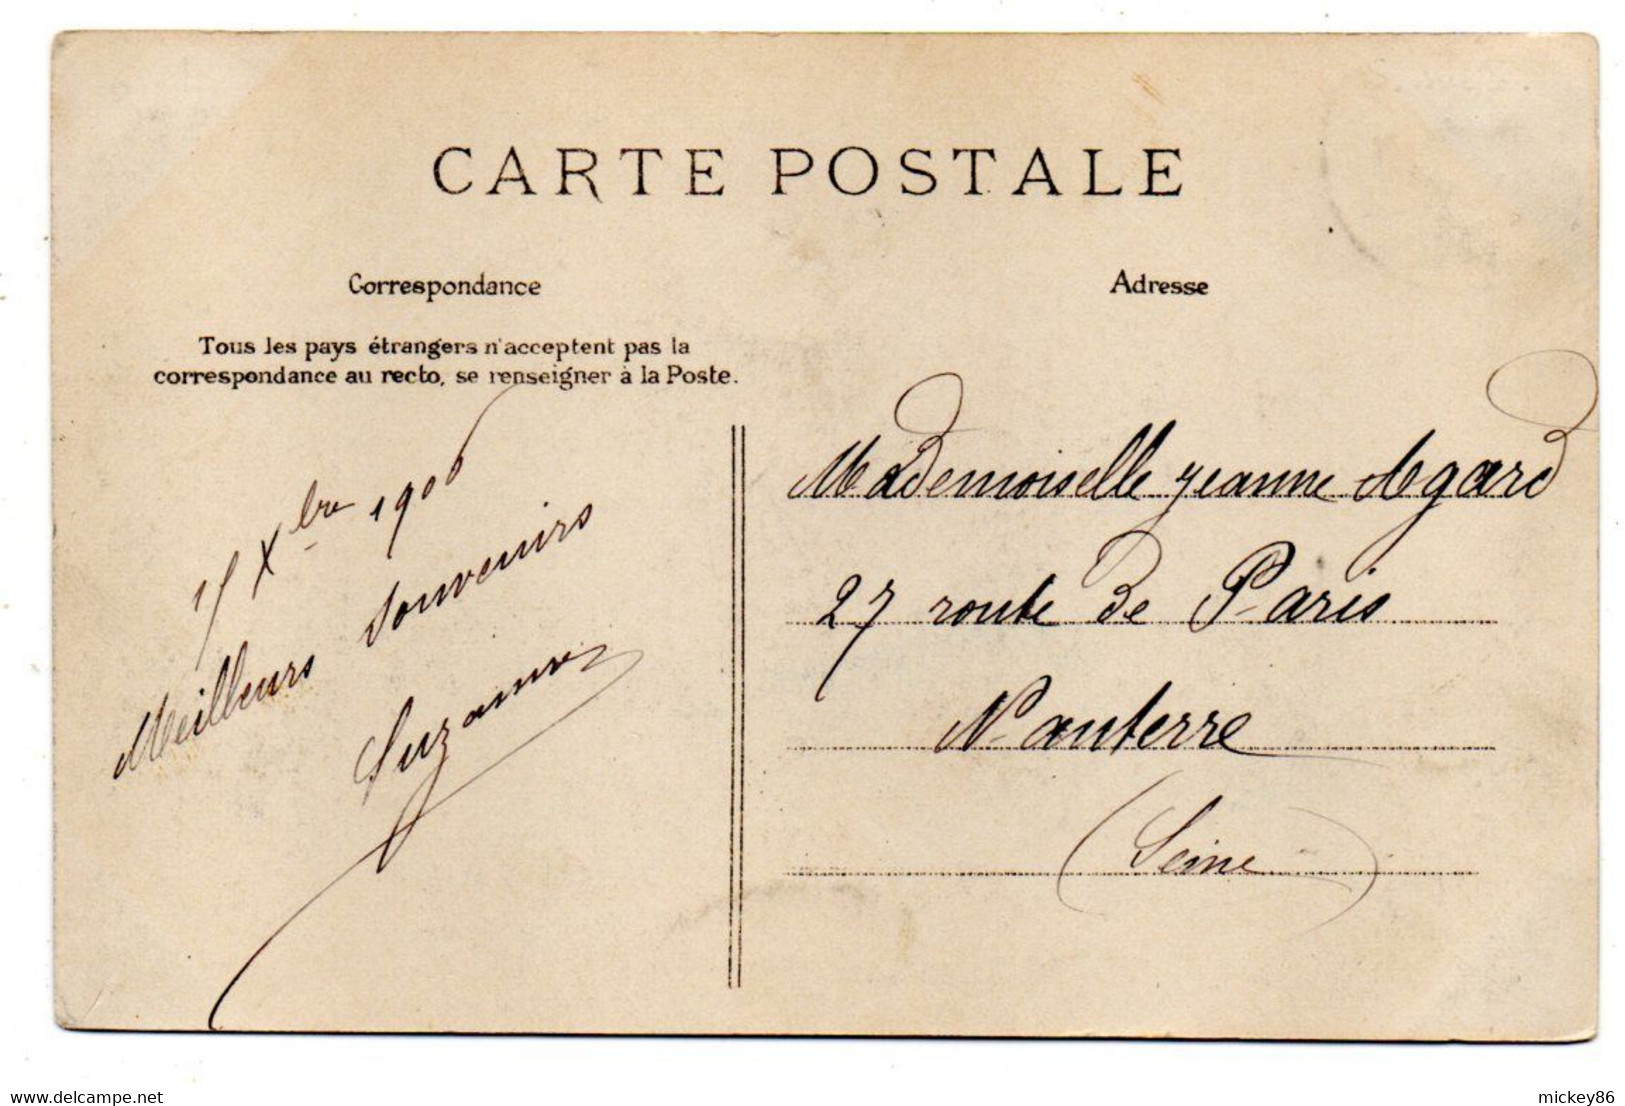 CARTE POSTALE
Correspondance
Adresse
Tous les pays étrangers n'acceptent pas la
correspondance au recto, se renseigner à la Poste.
15 Xbre 1906
Meilleurs souvenirs
Suzanne
Mademoiselle Jeanne Agard
27 route de Paris
Nanterre
(Seine)
See more on my website
mickey86